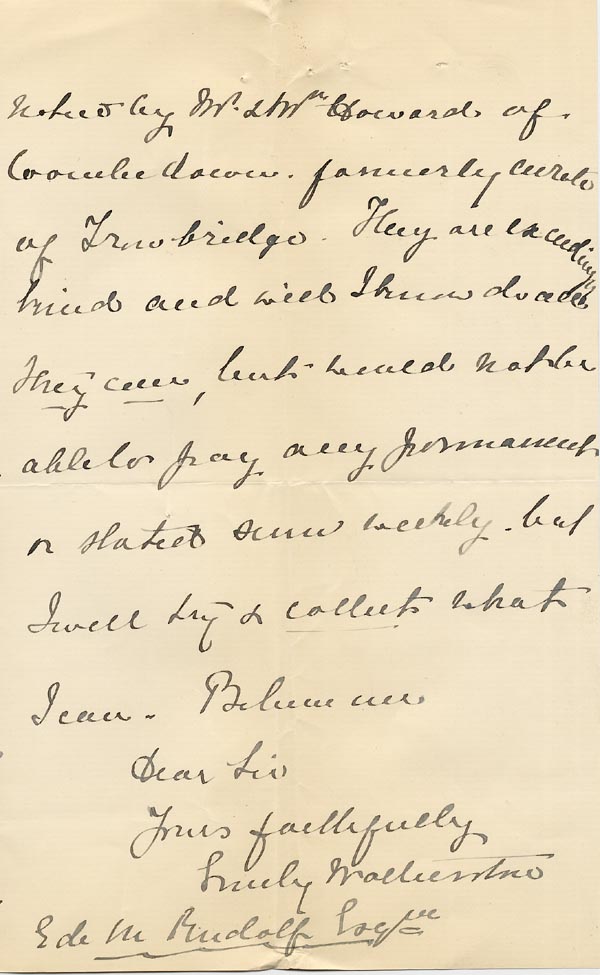 noticed by Mr. & Mrs Howard of
Coombe down. formerly curate
of Trowbridge. They are exceedingly
kind and will I know do all
they can, but would not be
able to pay any permanent
or stated sum weekly. but
I will try & collect what
I can. Believe me
Dear Sir
Yours faithfully
Emily
Ed. M Rudolf Esqre